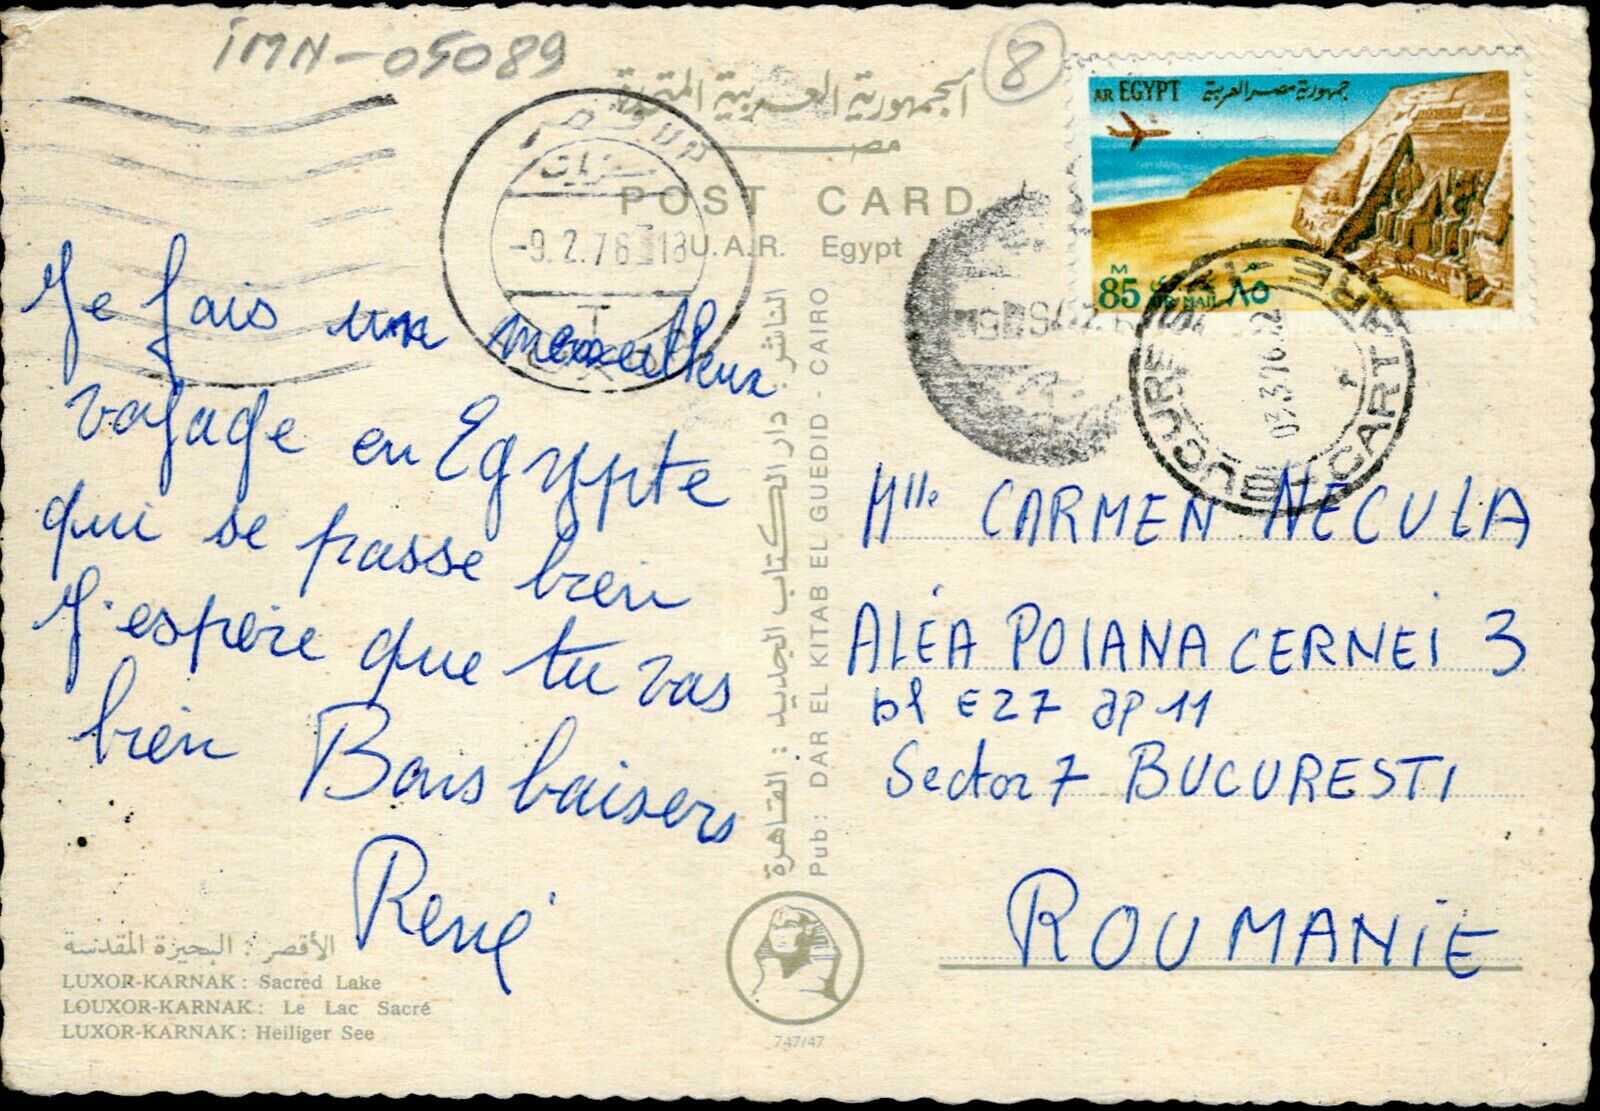 IMN-05089
8
الجمهورية العربية المتحدة
مصر
POST CARD
U.A.R. Egypt
AR EGYPT جمهورية مصر العربية
M
85 AIR MAIL ٨٥
-9.2.76 18
BUCURESTI
CARTARE
Je fais un merveilleux
voyage en Egypte
qui se passe bien
J'espère que tu vas
bien Bons baisers
René
Mlle CARMEN NECULA
ALÉA POIANA CERNEI 3
bl E27 ap 11
Sector 7 BUCURESTI
ROUMANIE
الناشر : دار الكتاب الجديد : القاهرة
Pub : DAR EL KITAB EL GUEDID - CAIRO
الأقصر : البحيرة المقدسة
LUXOR-KARNAK : Sacred Lake
LOUXOR-KARNAK : Le Lac Sacré
LUXOR-KARNAK : Heiliger See
747/47